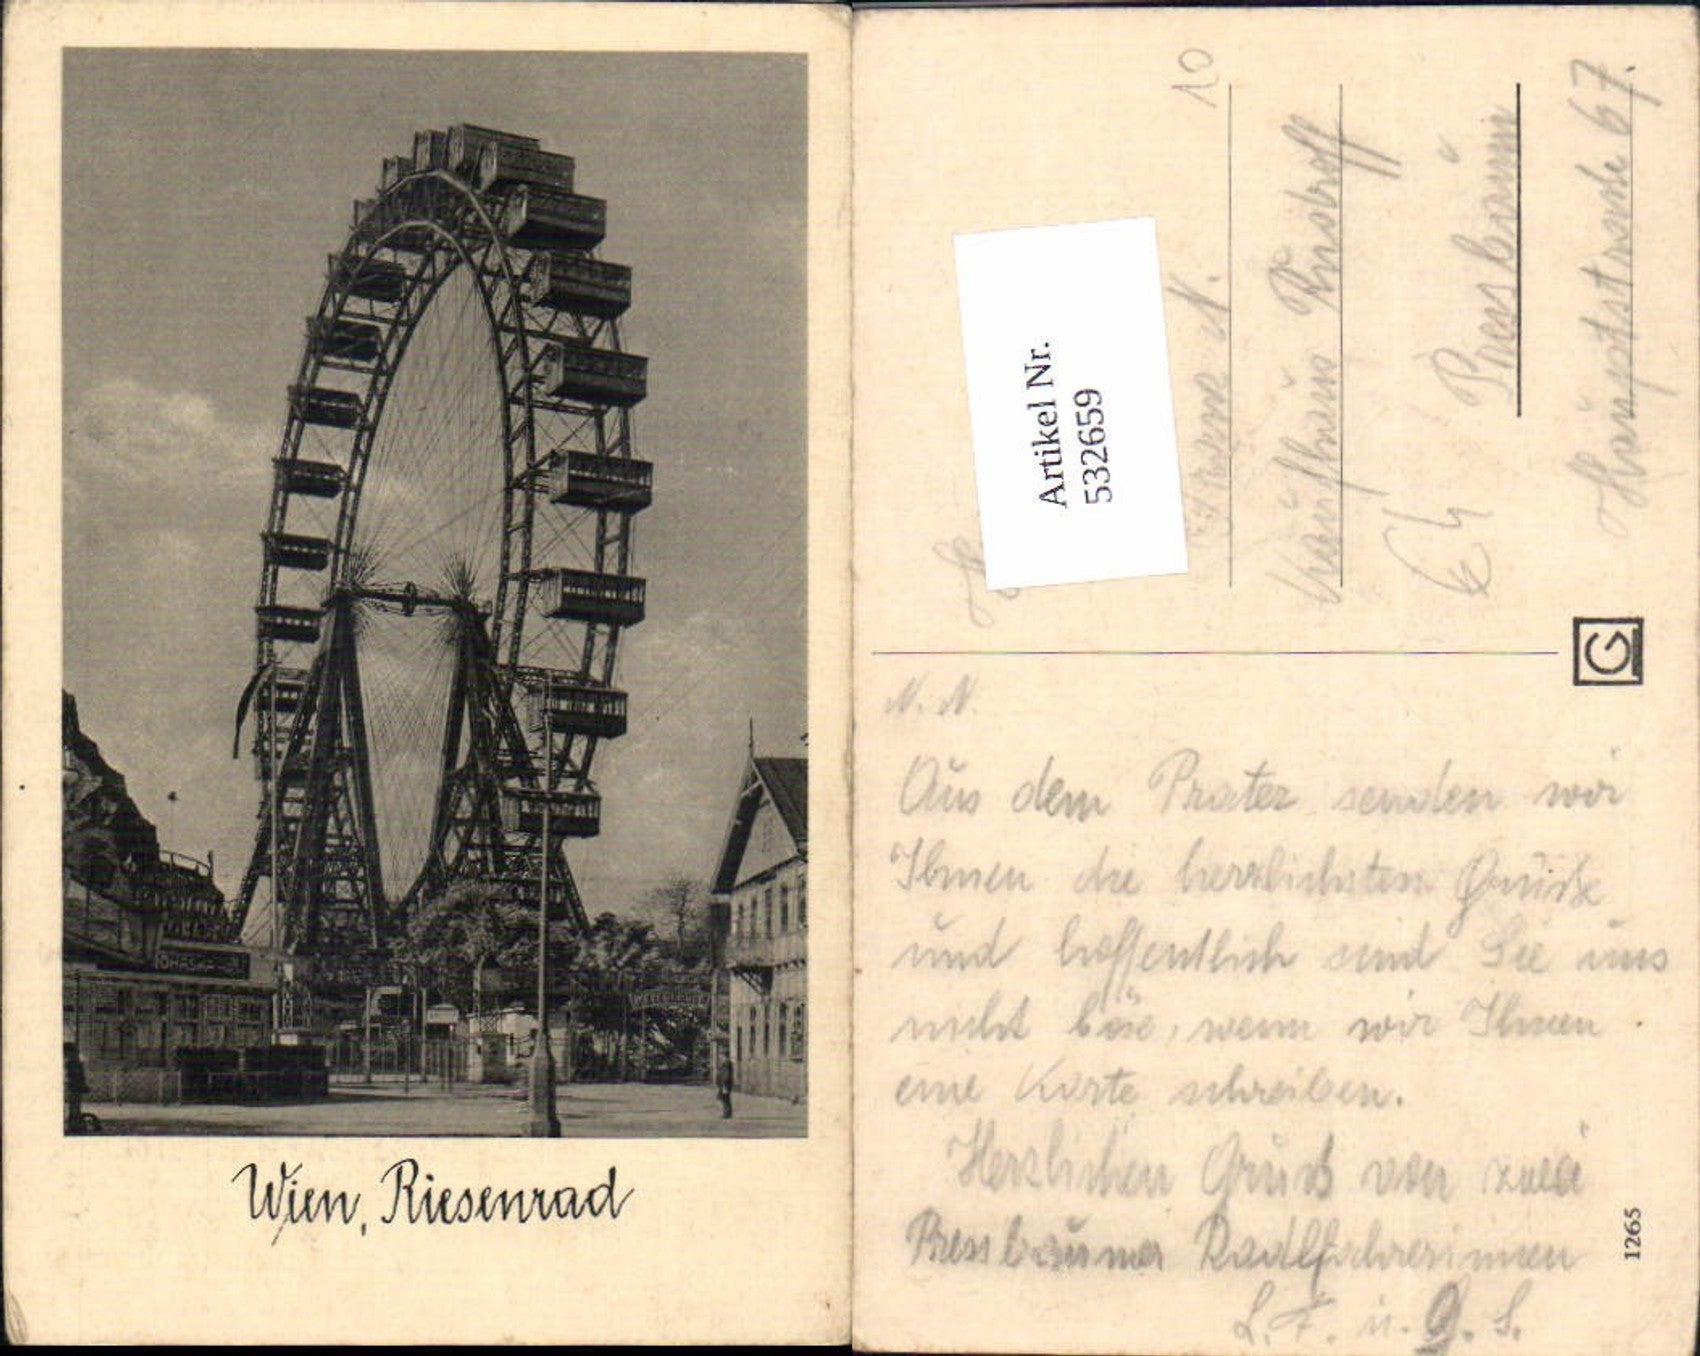 Wien, Riesenrad
Artikel Nr.
532659
10
N.
Kaufhaus
Pressbaum
Hauptstrasse 67.
G
N. N.
Aus dem Prater senden wir
Ihnen die herzlichsten Grüsse
und hoffentlich sind Sie uns
nicht böse, wenn wir Ihnen
eine Karte schreiben.
Herzlichen Gruß von zwei
Pressbaumer Radlfahrerinnen
L. F. u. G. S.
1265